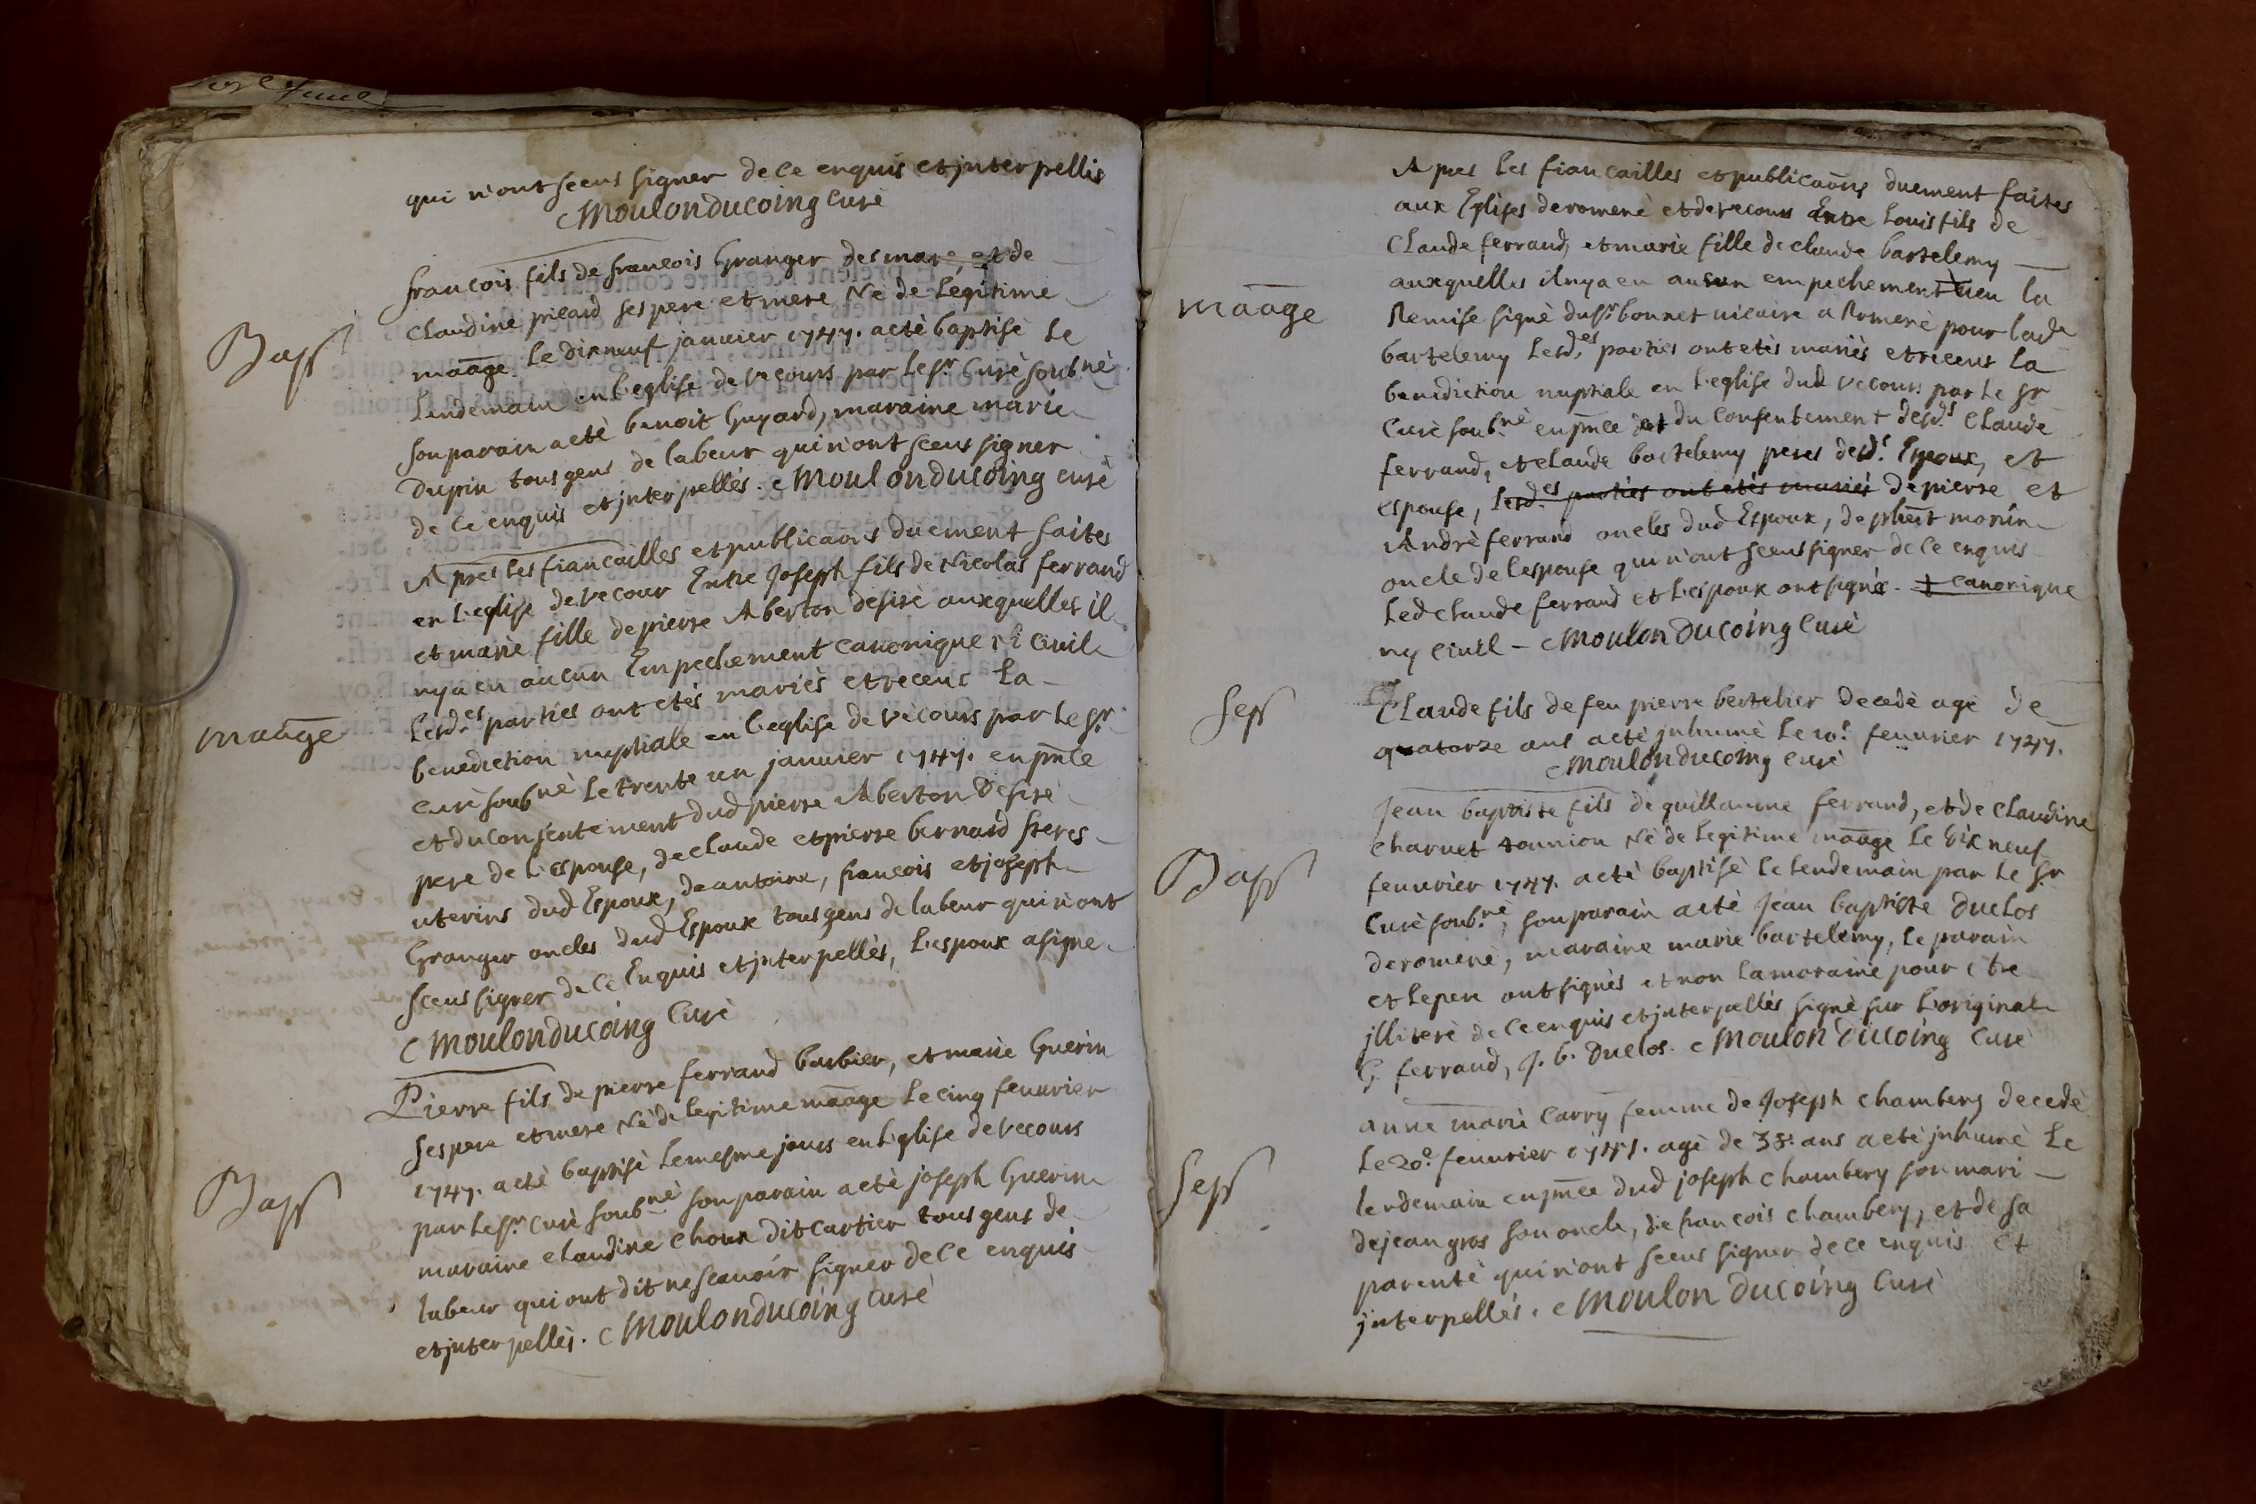 qui n'ont sceus signer de ce enquis et interpellis
Moulonducoing Curé
Bapt
francois fils de francois Granger desmare, et de
Claudine picard ses pere et mere Né de Légitime
maage Le dixneuf janvier 1747. a eté baptisé Le
Lendemain en L'eglise de vecours par Le Sr. Curé soubné
son parain a eté benoit Guyard, maraine marie
Dupin tous gens de labeur qui n'ont sceus signer
de Ce enquis et interpellés. Moulonducoing curé
maage
Apres Les fiancailles et publicaons duement faites
en L'eglise de vecour Entre Joseph fils de Nicolas ferrand
et marie fille de pierre Aberton desiré auxquelles il
ny a eu aucun Empechement Canonique Ni Civil
Lesd.es parties ont etés mariés et receus La
benediction nuptiale en L'eglise de vecours par Le Sr.
curé soubné Le trente un janvier 1747. en pnce
et du consentement dud pierre Aberton Desiré
pere de L'espouse, de claude et pierre bernard freres
uterins dud Espoux, de antoine, francois et joseph
Granger oncles dud Espoux tous gens de labeur qui n'ont
sceus signer de Ce Enquis et interpellés, L'espoux a signe
Moulonducoing Curé
Bapt
Pierre fils de pierre ferrand barbier, et marie Guerin
ses pere et mere Né de legitime maage Le cinq feuvrier
1747. a eté baptisé Le mesme jours en L'eglise de vecours
par Le Sr. Curé soubné son parain a eté joseph Guerin
maraine claudine choux dit Cartier tous gens de
labeur qui ont dit ne scavoir signer de Ce enquis
et interpellés. Moulonducoing Curé
maage
Apres Les fiancailles et publicaons duement faites
aux Eglises de romené et de vecours Entre Louis fils de
Claude ferrand, et marie fille de claude bartelemy
auxquelles il ny a eu aucun empechement + veu la
Remise signé du Sr bonnet vicaire a Romené pour lad.
bartelemy Lesd.es parties ont etés mariés et receus La
benediction nuptiale en L'eglise dud vecours par Le Sr
Curé soub.né en pnce et du Consentement desd.s Claude
ferrand, et claude bartelemy peres desd.s Espoux, et
espouse, lesd.es parties ont etés mariés de pierre et
André ferrand oncles dud Espoux, de morin
oncle de L'espouse qui n'ont sceus signer de ce enquis
Led claude ferrand et L'espoux ont signés. + canonique
ny civil - Moulon Ducoing Curé
Sep
Claude fils de feu pierre bertelier decedé agé de
quatorze ans a eté inhumé Le 10.e feuvrier 1747.
Moulonducoing curé
Bapt
Jean baptiste fils de guillaume ferrand, et de Claudine
charvet tounion Né de Legitime maage Le dix neuf
feuvrier 1747. a eté baptisé Le Lendemain par Le Sr
Curé soub.né, son parain a eté Jean baptiste Duclos
de romené, maraine marie bartelemy, le parain
et Le pere ont signés et non la maraine pour etre
illiteré de Ce enquis et interpellés signé sur L'original
G. ferrand, J. b. Duclos. Moulon Ducoing Curé
Sep
anne marie Carry femme de Joseph Chambery decedé
Le 20.e feuvrier 1747. agé de 38. ans a eté inhumé Le
lendemain en pnce dud joseph Chambery son mari
de jean gros son oncle, de francois Chambery, et de sa
parenté qui n'ont sceus signer de ce enquis et
interpellés. Moulon Ducoing Curé